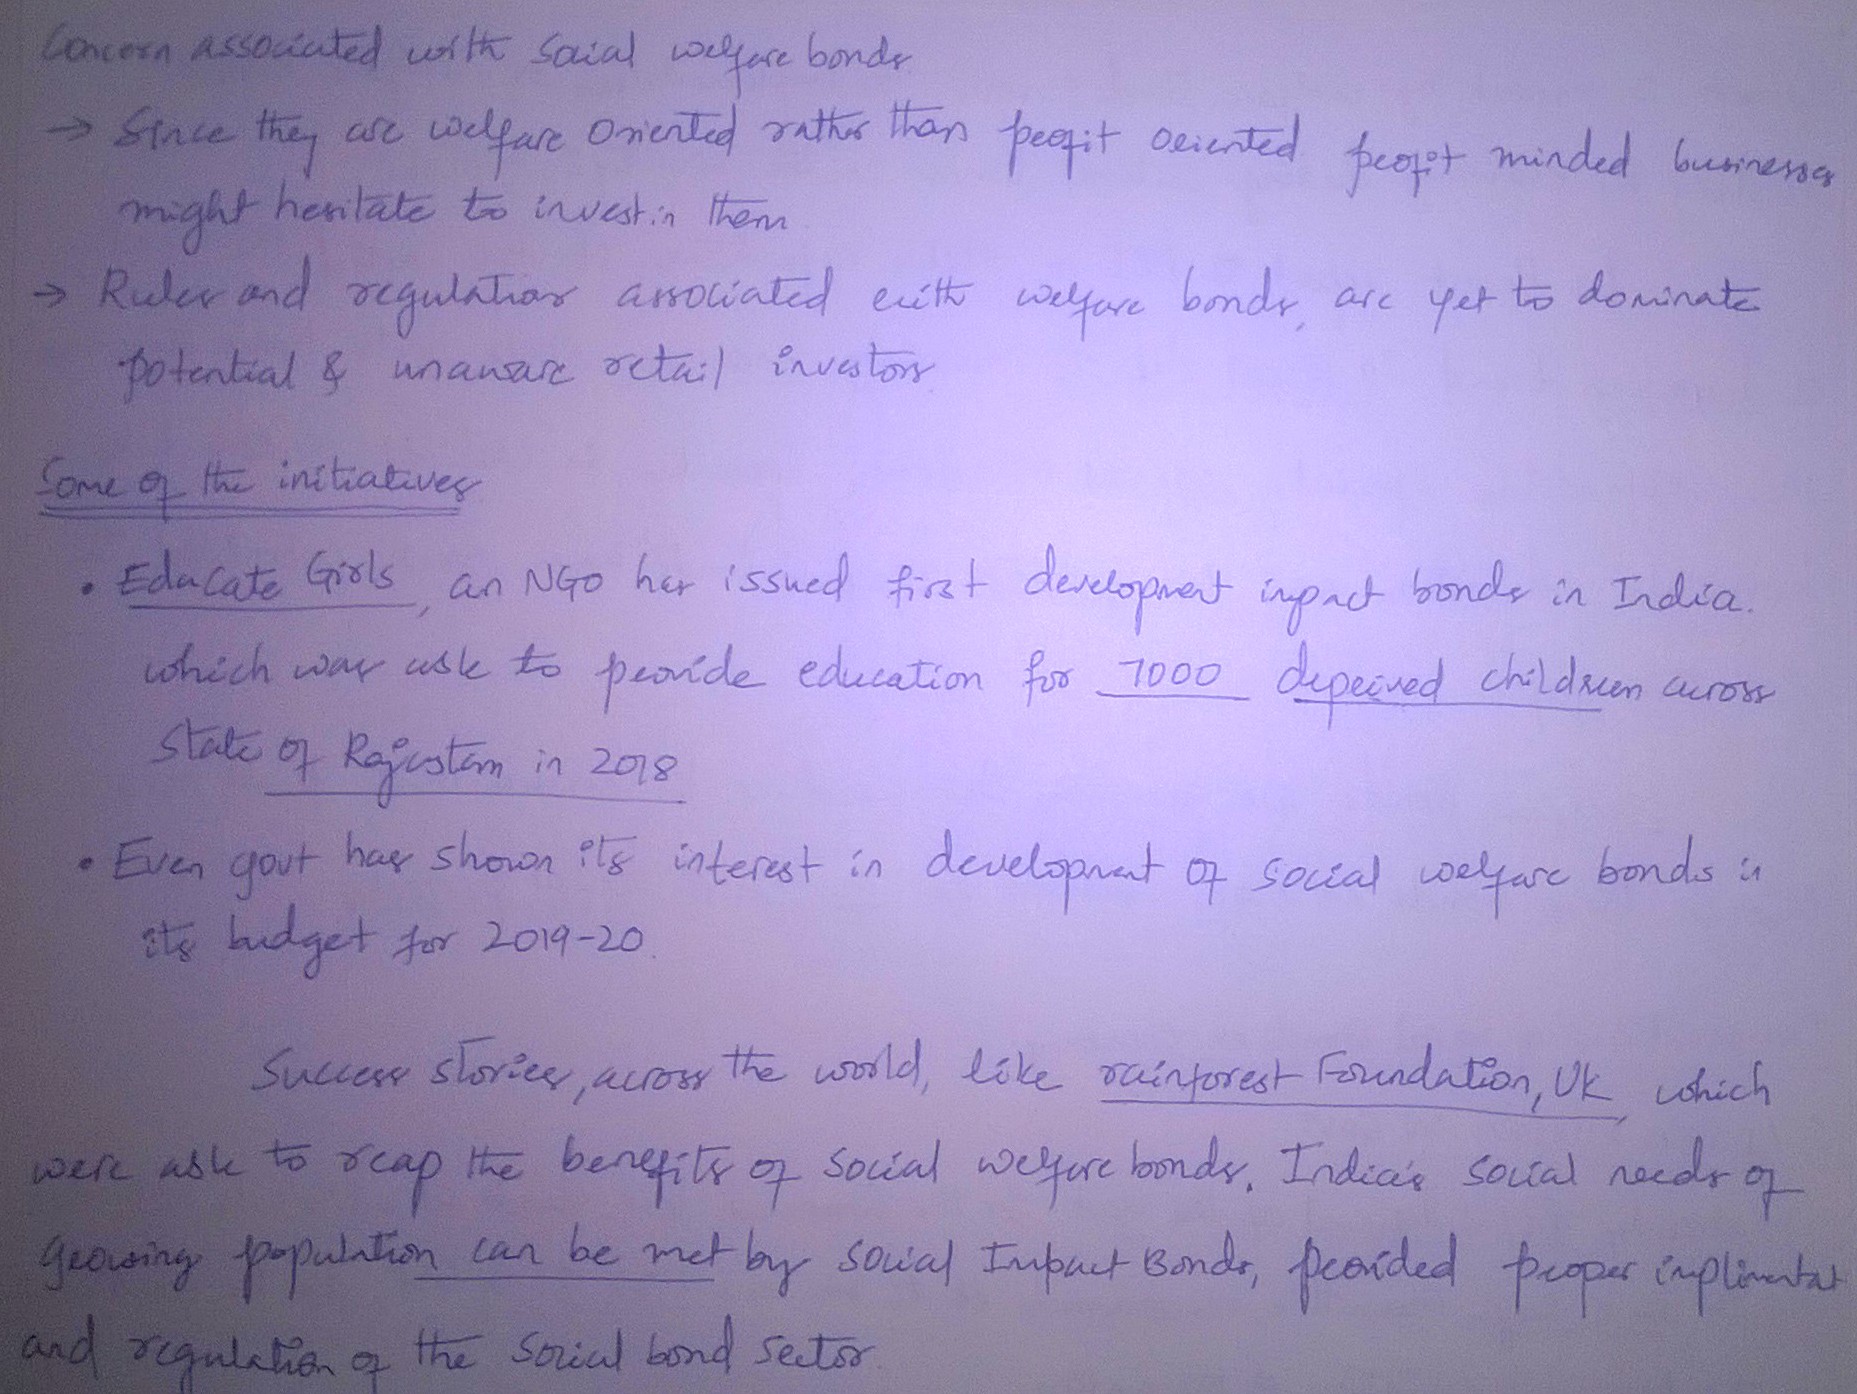 Concern associated with Social welfare bonds
→ Since they are welfare oriented rather than profit oriented profit minded businesses
might hesitate to invest in them
→ Rules and regulations associated with welfare bonds, are yet to dominate
potential & unaware retail investors
Some of the initiatives
• Educate Girls, an NGO has issued first development impact bonds in India.
which was able to provide education for 7000 deprived children across
State of Rajastan in 2018
• Even govt has shown its interest in development of social welfare bonds in
its budget for 2019-20.
Success stories, across the world, like rainforest Foundation, UK, which
were able to reap the benefits of social welfare bonds. India's social needs of
growing population can be met by social Impact Bonds, provided proper
and regulation of the social bond sector.